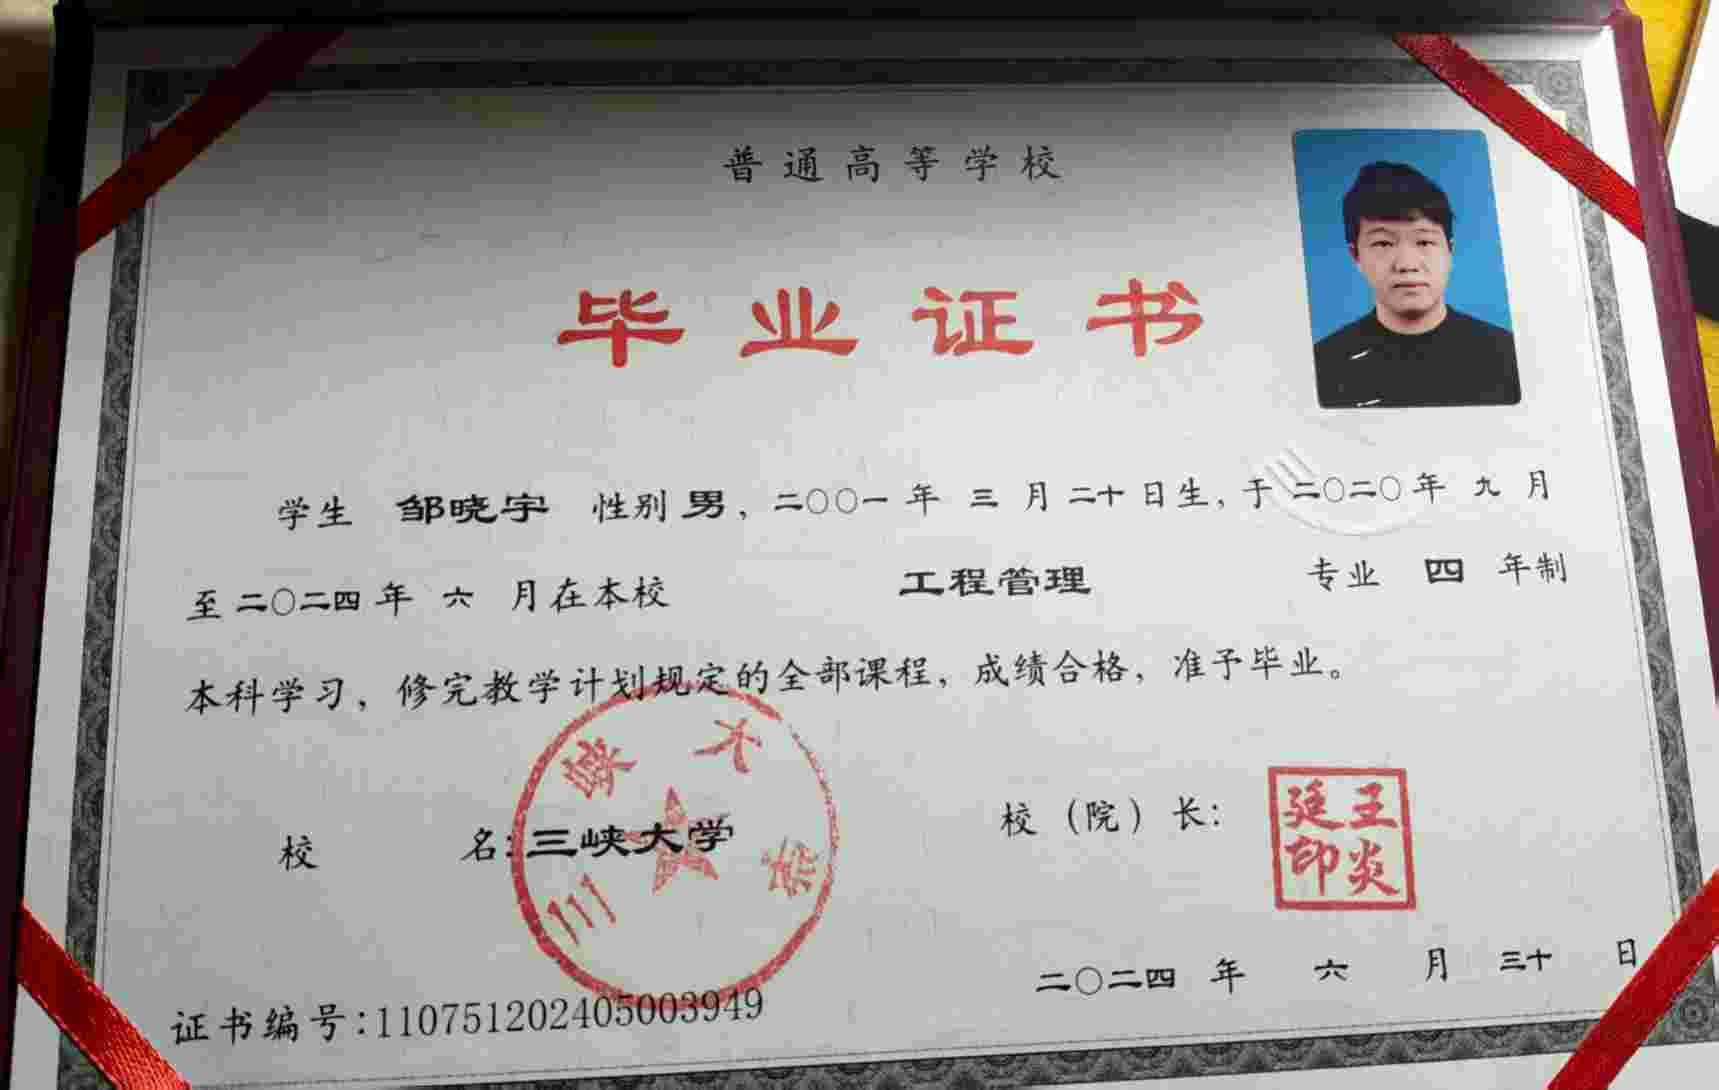 普通高等学校
毕业证书
学生 邹晓宇 性别 男，二〇〇一 年 三 月 二十 日生，于 二〇二〇 年 九 月
至 二〇二四 年 六 月在本校 工程管理 专业 四 年制
本科学习，修完教学计划规定的全部课程，成绩合格，准予毕业。
校 名：三峡大学 校（院）长：
三峡大学
王炎廷印
二〇二四 年 六 月 三十 日
证书编号：110751202405003949